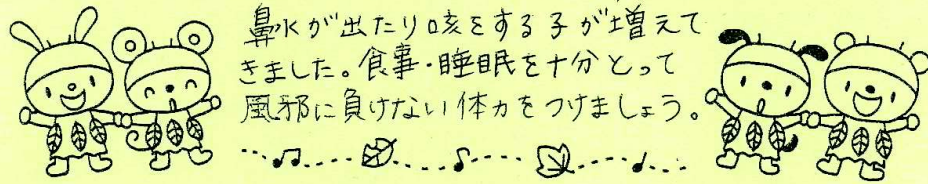 鼻水が出たり咳をする子が増えて
きました。食事・睡眠を十分とって
風邪に負けない体力をつけましょう。